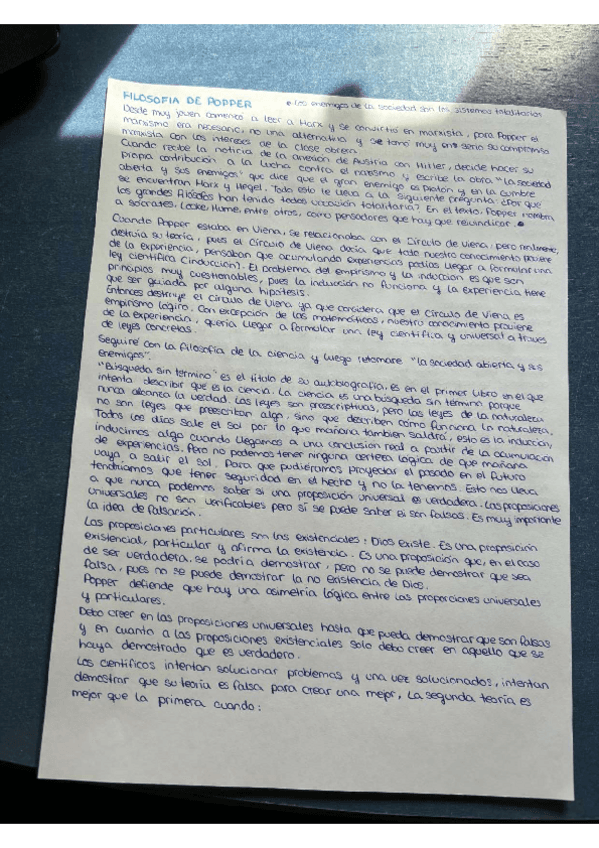 FILOSOFIA DE POPPER
• Los enemigos de la sociedad son los sistemas totalitarios
Desde muy joven comenzó a leer a Marx y se convirtió en marxista, para Popper el
marxismo era necesario, no una alternativa y se tomó muy en serio su compromiso
marxista con los intereses de la clase obrera.
Cuando recibe la noticia de la anexión de Austria con Hitler, decide hacer su
propia contribución a la lucha contra el nazismo y escribe la obra "La sociedad
abierta y sus enemigos" que dice que el gran enemigo es Platón y en la cumbre
se encuentran Marx y Hegel. Todo esto le lleva a la siguiente pregunta: ¿Por qué
los grandes filósofos han tenido todos vocación totalitaria? En el texto, Popper nombra
a Sócrates, Locke, Hume, entre otros, como pensadores que hay que reivindicar.•
Cuando Popper estaba en Viena, se relacionaba con el Círculo de Viena, pero realmente,
destruía su teoría, pues el Círculo de Viena decía que todo nuestro conocimiento proviene
de la experiencia, pensaban que acumulando experiencias podías llegar a formular una
ley científica (inducción). El problema del empirismo y la inducción es que son
principios muy cuestionables, pues la inducción no funciona y la experiencia tiene
que ser guiada por alguna hipótesis.
Entonces destruye el Círculo de Viena ya que considera que el Círculo de Viena es
empirismo lógico. Con excepción de las matemáticas, nuestro conocimiento proviene
de la experiencia, quería llegar a formular una ley científica y universal a través
de leyes concretas.
Seguiré con la filosofía de la ciencia y luego retomaré "la sociedad abierta y sus
enemigos".
"Búsqueda sin término" es el título de su autobiografía, es en el primer libro en el que
intenta describir que es la ciencia. La ciencia es una búsqueda sin término porque
nunca alcanza la verdad. Las leyes son prescriptivas, pero las leyes de la naturaleza
no son leyes que prescriban algo, sino que describen cómo funciona la naturaleza.
Todos los días sale el sol por lo que mañana también saldrá, esto es la inducción,
inducimos algo cuando llegamos a una conclusión real a partir de la acumulación
de experiencias. Pero no podemos tener ninguna certeza lógica de que mañana
vaya a salir el sol. Para que pudiéramos proyectar el pasado en el futuro
tendríamos que tener seguridad en el hecho y no la tenemos. Esto nos lleva
a que nunca podemos saber si una proposición universal es verdadera. Las proposiciones
universales no son verificables pero sí se puede saber si son falsas. Es muy importante
la idea de falsación.
Las proposiciones particulares son las existenciales: Dios existe. Es una proposición
existencial, particular y afirma la existencia. Es una proposición que, en el caso
de ser verdadera, se podría demostrar, pero no se puede demostrar que sea
falsa, pues no se puede demostrar la no existencia de Dios.
Popper defiende que hay una asimetría lógica entre las proporciones universales
y particulares.
Debo creer en las proposiciones universales hasta que pueda demostrar que son falsas
y en cuanto a las proposiciones existenciales solo debo creer en aquello que se
haya demostrado que es verdadero.
Los científicos intentan solucionar problemas y una vez solucionados, intentan
demostrar que su teoría es falsa para crear una mejor. La segunda teoría es
mejor que la primera cuando: